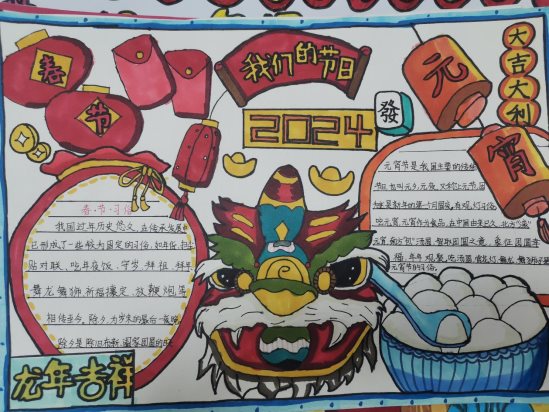 春
节
我们的节日
2024
發
元
宵
大吉大利
春·节·习俗
我国过年历史悠久,在传承发展中
已形成了一些较为固定的习俗,如年货、扫
贴对联、吃年夜饭、守岁、拜祖、拜年
舞龙舞狮、祈福攘灾、放鞭炮等
相传至今,除夕,为岁末的最后一夜晚
除夕是除旧布新
元宵节是我国主要的传统
也叫元夕、元夜,又称上元节,因
为这是新年的第一个月圆夜,有观灯习俗
吃元宵,元宵作为食品,在中国由来已久,北方"滚"
元宵,南方"包"汤圆,智取团圆之意,象征团圆幸
福,年年观聚,吃汤圆、赏花灯、舞龙、舞狮子等
元宵节的习俗。
龙年吉祥